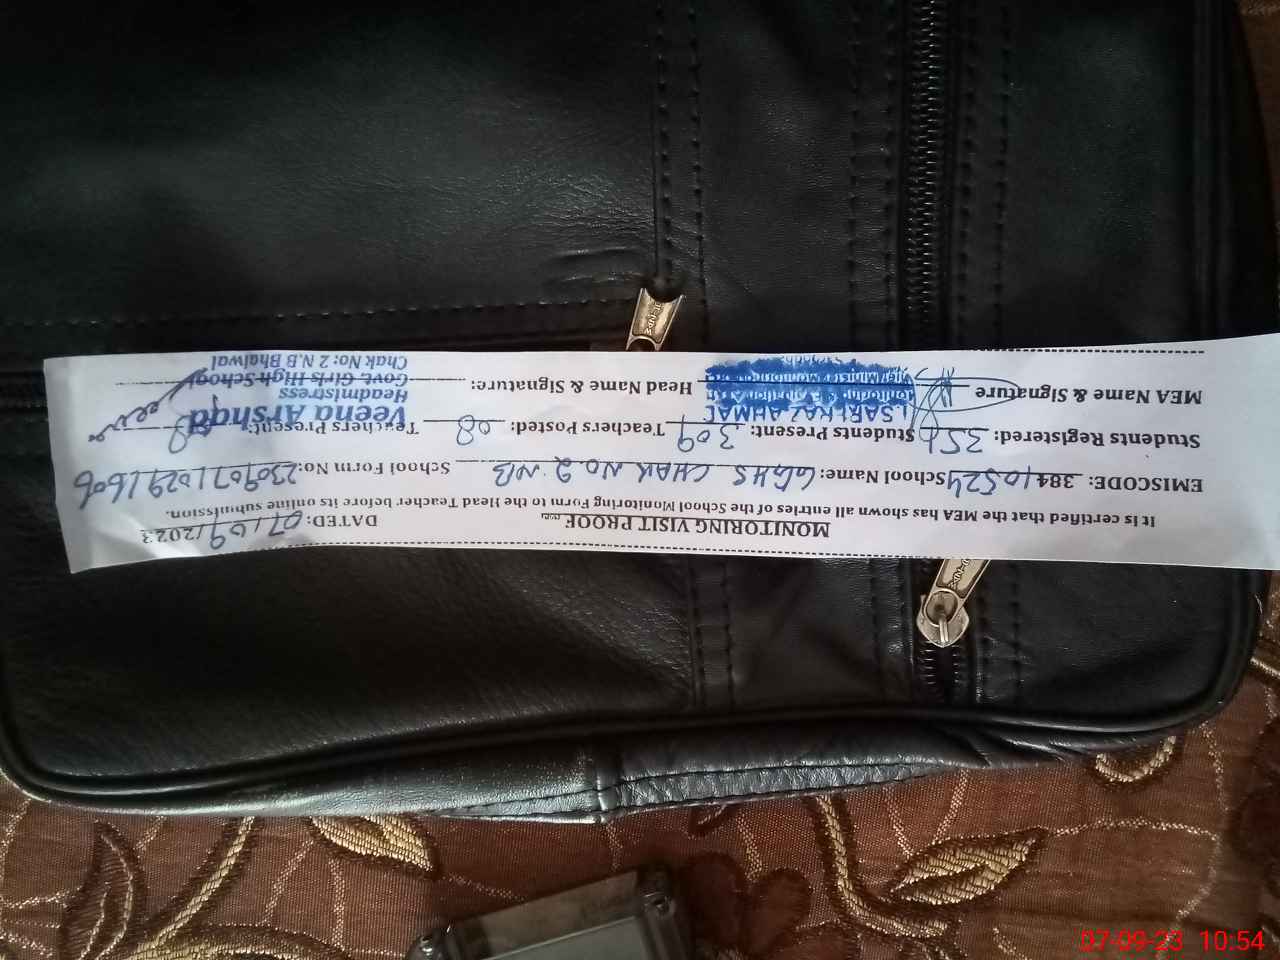 MONITORING VISIT PROOF
DATED: 07/09/2023
It is certified that the MEA has shown all entries of the School Monitoring Form to the Head Teacher before its online submission.
EMISCODE: 38410524 School Name: GGHS CHAK NO 2 NB School Form No: 2309071029
Students Registered: 356 Students Present: 309 Teachers Posted: 08 Teachers Present: 8
MEA Name & Signature Head Name & Signature:
Veena Arshad
Headmistress
Govt. Girls High School
Chak No: 2 N.B Bhalwal
07-09-23 10:54